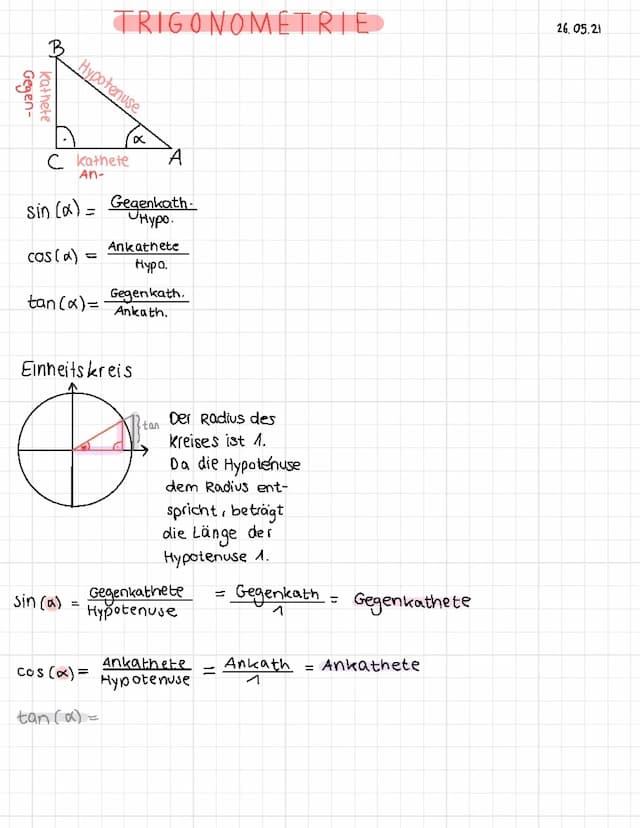 TRIGONOMETRIE
26.05.21
B
Hypotenuse
Gegen-
kathete
α
C kathete A
An-
sin(α) = Gegenkath. / Hypo.
cos(α) = Ankathete / Hypo.
tan(α) = Gegenkath. / Ankath.
Einheitskreis
tan
Der Radius des
Kreises ist 1.
Da die Hypotenuse
dem Radius ent-
spricht, beträgt
die Länge der
Hypotenuse 1.
sin(α) = Gegenkathete / Hypotenuse = Gegenkath / 1 = Gegenkathete
cos(α) = Ankathete / Hypotenuse = Ankath / 1 = Ankathete
tan(α) =